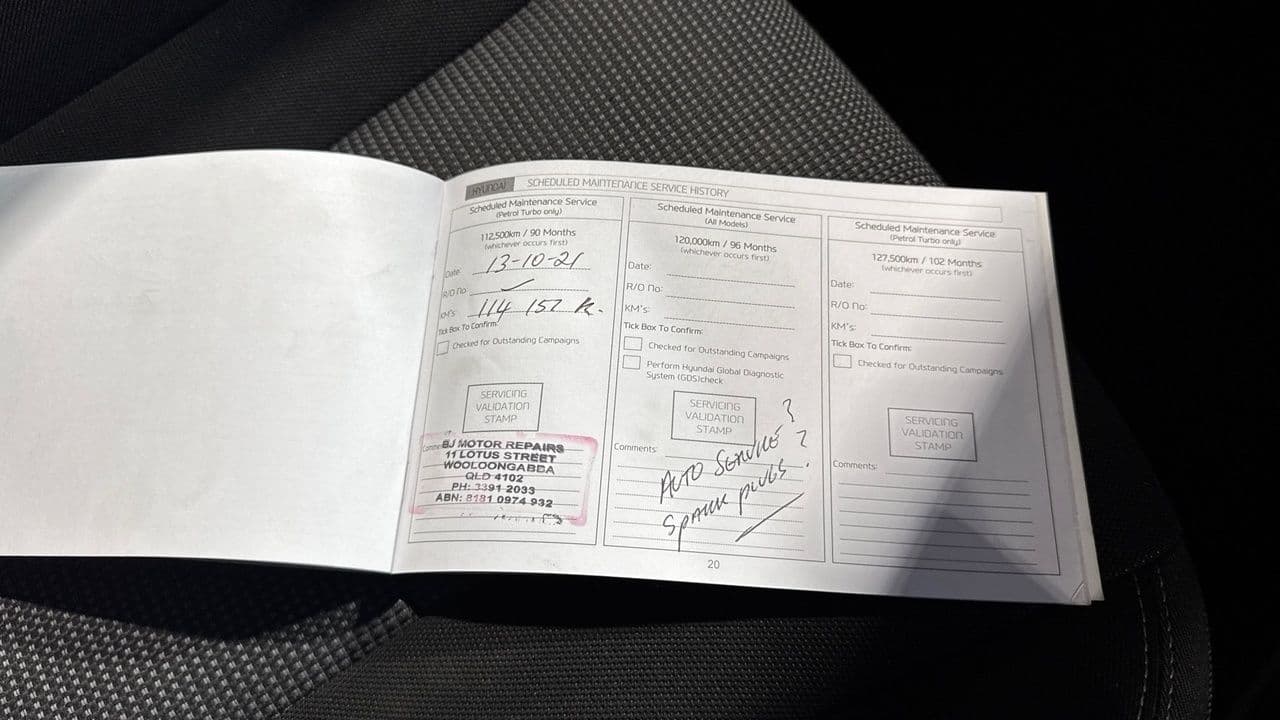 HYUNDAI
SCHEDULED MAINTENANCE SERVICE HISTORY
Scheduled Maintenance Service
(Petrol Turbo only)
112,500km / 90 Months
(whichever occurs first)
Date: 13-10-21
R/O No: ✓
KM's: 114 152 K.
Tick Box To Confirm:
Checked for Outstanding Campaigns
SERVICING
VALIDATION
STAMP
BJ MOTOR REPAIRS
11 LOTUS STREET
WOOLOONGABBA
QLD 4102
PH: 3391 2033
ABN: 8181 0974 932
Scheduled Maintenance Service
(All Models)
120,000km / 96 Months
(whichever occurs first)
Date:
R/O No:
KM's:
Tick Box To Confirm:
Checked for Outstanding Campaigns
Perform Hyundai Global Diagnostic
System (GDS)check
SERVICING
VALIDATION
STAMP
Comments:
AUTO SERVICE ?
SPARK PLUGS ?
20
Scheduled Maintenance Service
(Petrol Turbo only)
127,500km / 102 Months
(whichever occurs first)
Date:
R/O No:
KM's:
Tick Box To Confirm:
Checked for Outstanding Campaigns
SERVICING
VALIDATION
STAMP
Comments: